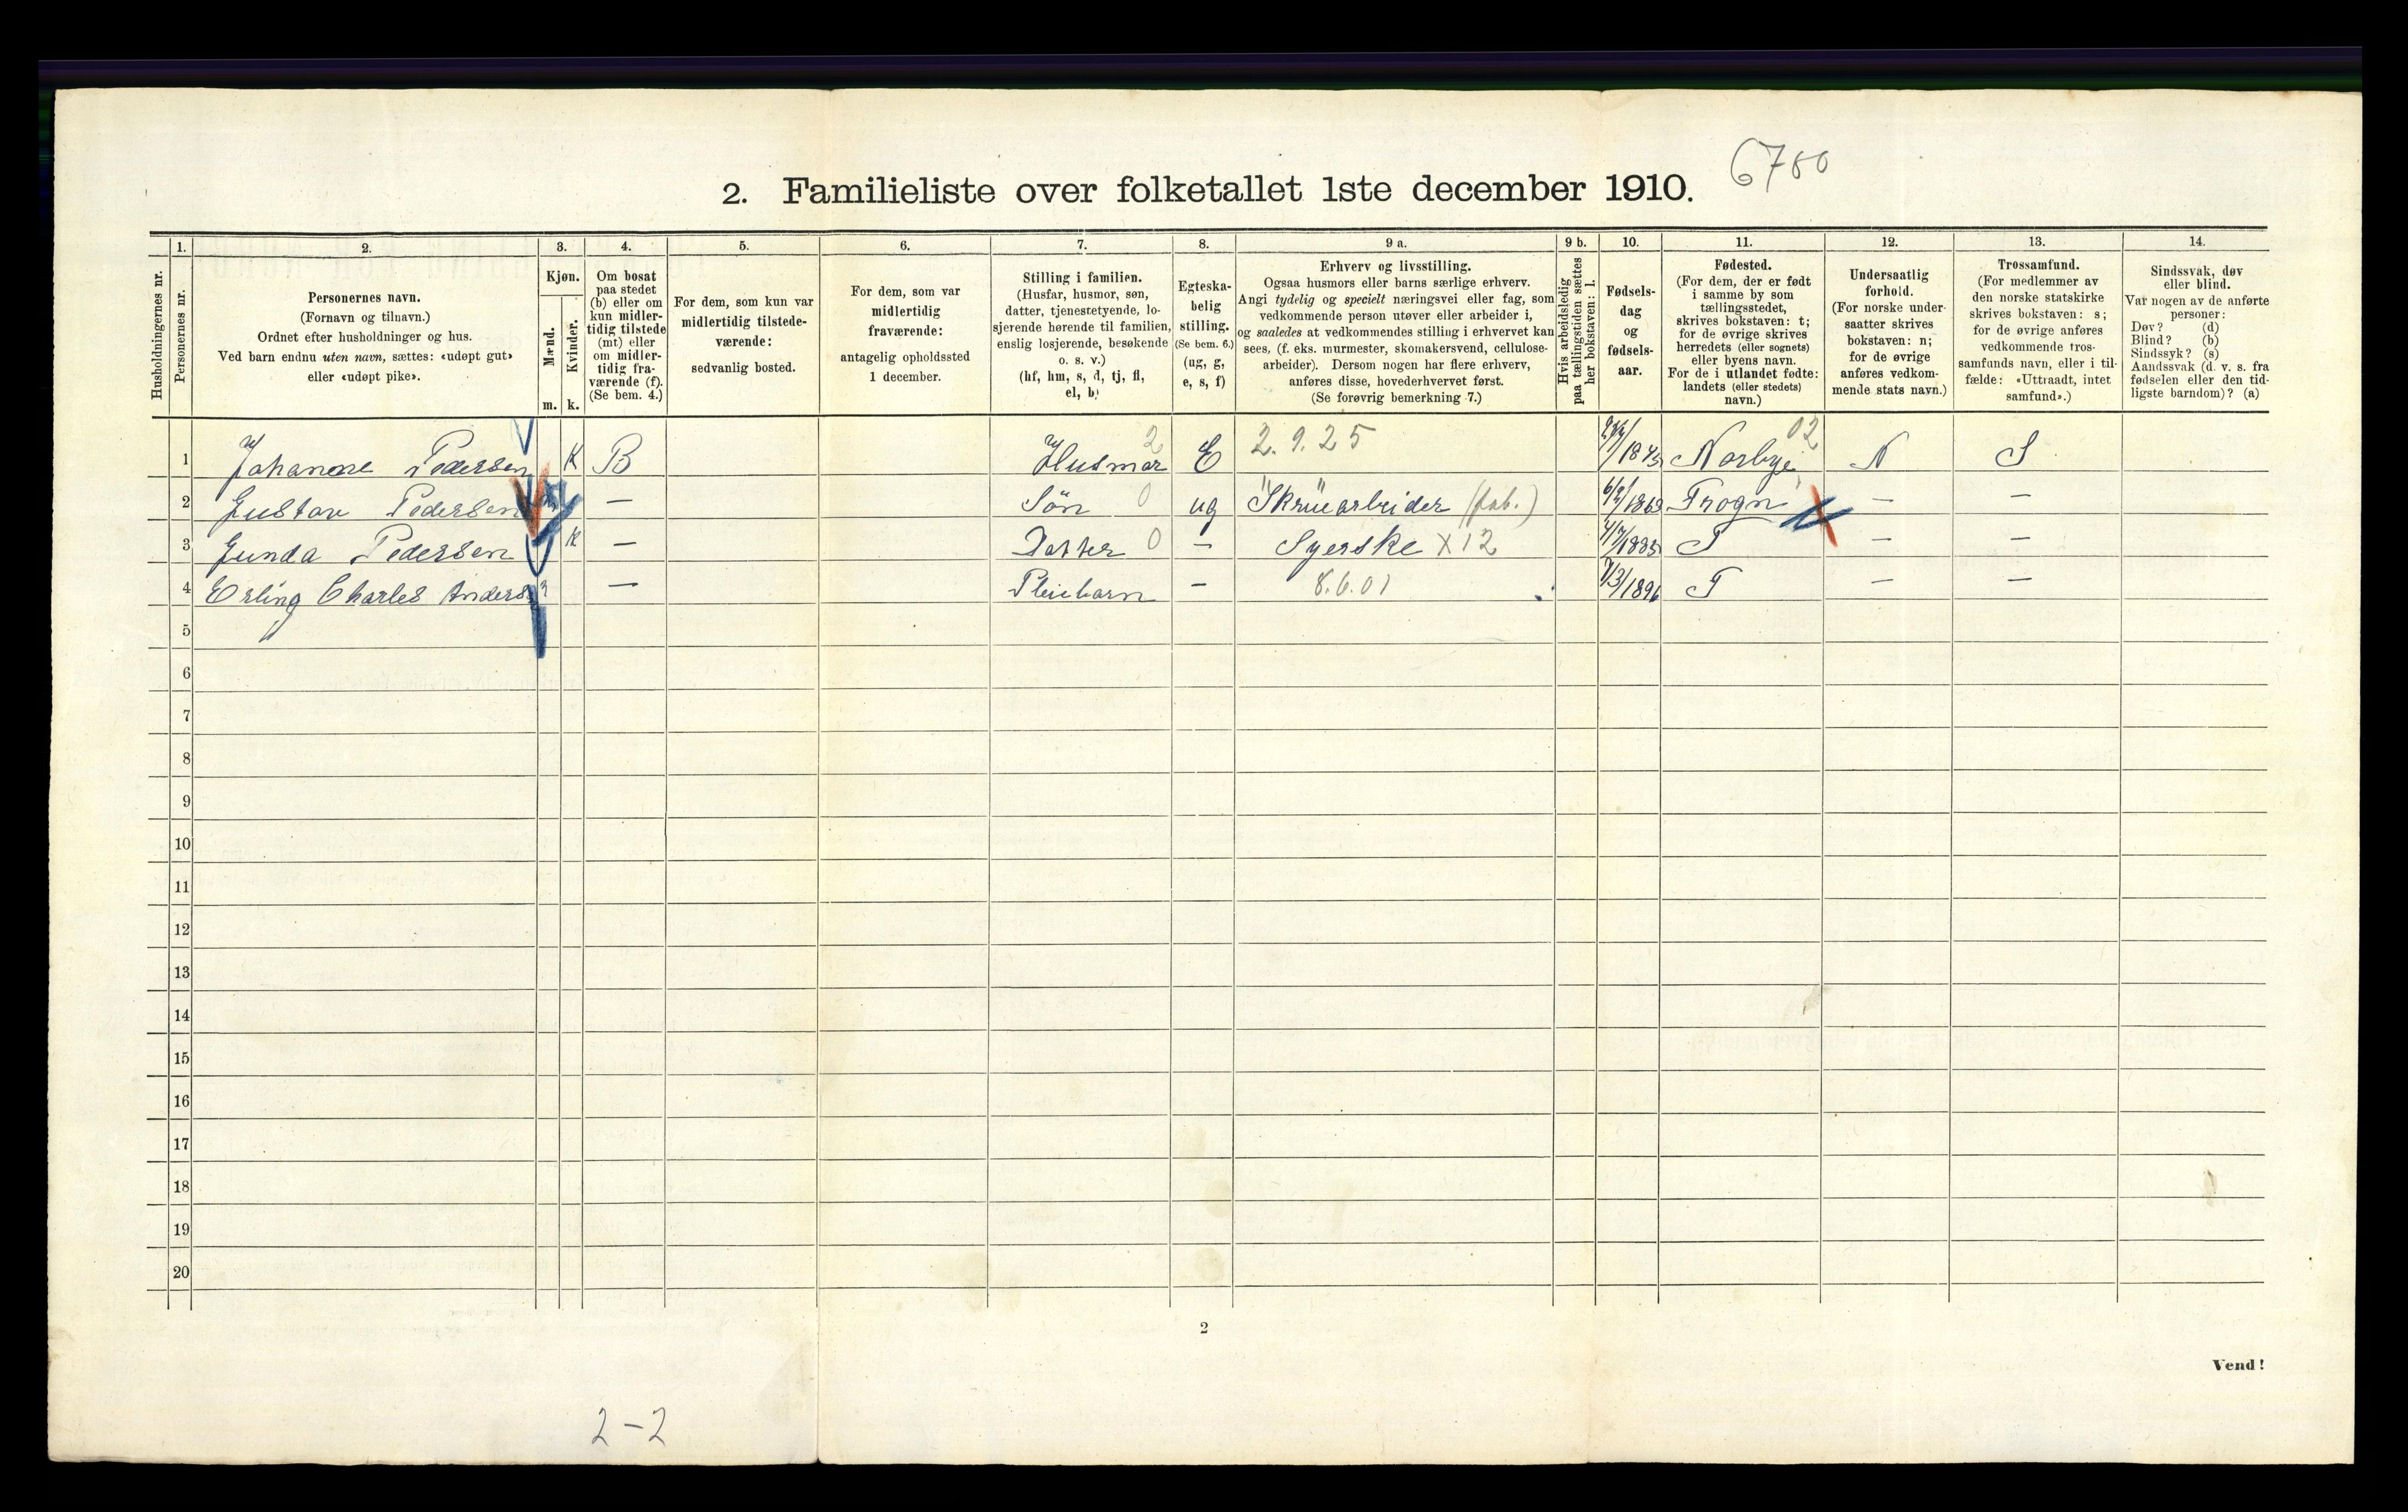 6780
2. Familieliste over folketallet 1ste december 1910.
Husholdningernes nr.
1. Personernes nr.
2. Personernes navn.
(Fornavn og tilnavn.)
Ordnet efter husholdninger og hus.
Ved barn endnu uten navn, sættes: «udøpt gut»
eller «udøpt pike».
3. Kjøn.
Mænd. m.
Kvinder. k.
4. Om bosat
paa stedet
(b) eller om
kun midler-
tidig tilstede
(mt) eller
om midler-
tidig fra-
værende (f).
(Se bem. 4.)
5. For dem, som kun var
midlertidig tilstede-
værende:
sedvanlig bosted.
6. For dem, som var
midlertidig
fraværende:
antagelig opholdssted
1 december.
7. Stilling i familien.
(Husfar, husmor, søn,
datter, tjenestetyende, lo-
sjerende hørende til familien,
enslig losjerende, besøkende
o. s. v.)
(hf, hm, s, d, tj, fl,
el, b)
8. Egteska-
belig
stilling.
(Se bem. 6.)
(ug, g,
e, s, f)
9 a. Erhverv og livsstilling.
Ogsaa husmors eller barns særlige erhverv.
Angi tydelig og specielt næringsvei eller fag, som
vedkommende person utøver eller arbeider i,
og saaledes at vedkommendes stilling i erhvervet kan
sees, (f. eks. murmester, skomakersvend, cellulose-
arbeider). Dersom nogen har flere erhverv,
anføres disse, hovederhvervet først.
(Se forøvrig bemerkning 7.)
9 b. Hvis arbeidsledig
paa tællingstiden sættes
her bokstaven: l.
10. Fødsels-
dag
og
fødsels-
aar.
11. Fødested.
(For dem, der er født
i samme by som
tællingsstedet,
skrives bokstaven: t;
for de øvrige skrives
herredets (eller sognets)
eller byens navn.
For de i utlandet fødte:
landets (eller stedets)
navn.)
12. Undersaatlig
forhold.
(For norske under-
saatter skrives
bokstaven: n;
for de øvrige
anføres vedkom-
mende stats navn.)
13. Trossamfund.
(For medlemmer av
den norske statskirke
skrives bokstaven: s;
for de øvrige anføres
vedkommende tros-
samfunds navn, eller i til-
fælde: «Uttraadt, intet
samfund».)
14. Sindssvak, døv
eller blind.
Var nogen av de anførte
personer:
Døv? (d)
Blind? (b)
Sindssyk? (s)
Aandssvak (d. v. s. fra
fødselen eller den tid-
ligste barndom)? (a)
1 Pedersen K B Husmor 2 E 2.9.25 /1843 Norbye 02 N S
2 Gustav Pedersen — Sön 0 ug "Skrüearbeider (fab.) Frogn — —
3 Gunda Pedersen K — Datter 0 — Syerske X12 T — —
4 Erling Charles Anders — Pleiebarn — 8.6.01 /3/1896 T — —
5
6
7
8
9
10
11
12
13
14
15
16
17
18
19
20
2
Vend!
2-2